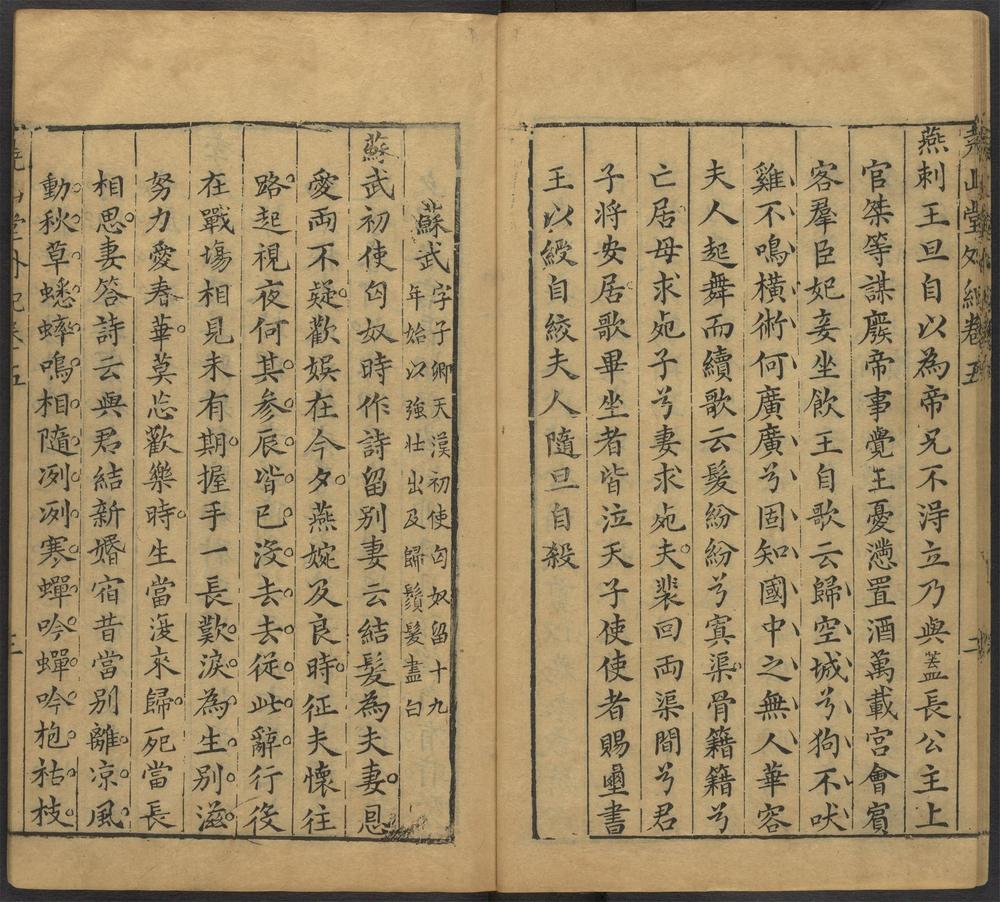 堯山堂外紀卷五 二
燕刺王旦自以為帝兄不淂立乃與蓋長公主上
官桀等謀廢帝事覺王憂懣置酒萬載宮會賓
客羣臣妃妾坐飲王自歌云歸空城兮狗不吠
雞不鳴橫術何廣廣兮固知國中之無人華容
夫人起舞而續歌云髮紛紛兮寘渠骨籍籍兮
亡居母求死子兮妻求死夫裴回両渠間兮君
子将安居歌畢坐者皆泣天子使使者賜璽書
王以綬自絞夫人隨旦自殺
蘇武
字子卿天漢初使匈奴留十九
年始以強壮出及歸鬚髮盡白
蘇武初使匈奴時作詩留別妻云結髮為夫妻恩
愛両不疑歡娛在今夕燕婉及良時征夫懷往
路起視夜何其參辰皆已没去去従此辭行役
在戰塲相見未有期握手一長歎淚為生別滋
努力愛春華莫忘歡樂時生當復來歸死當長
相思妻答詩云與君結新婚宿昔當別離凉風
動秋草蟋蟀鳴相隨冽冽寒蟬吟蟬吟枹枯枝
堯山堂外紀卷五